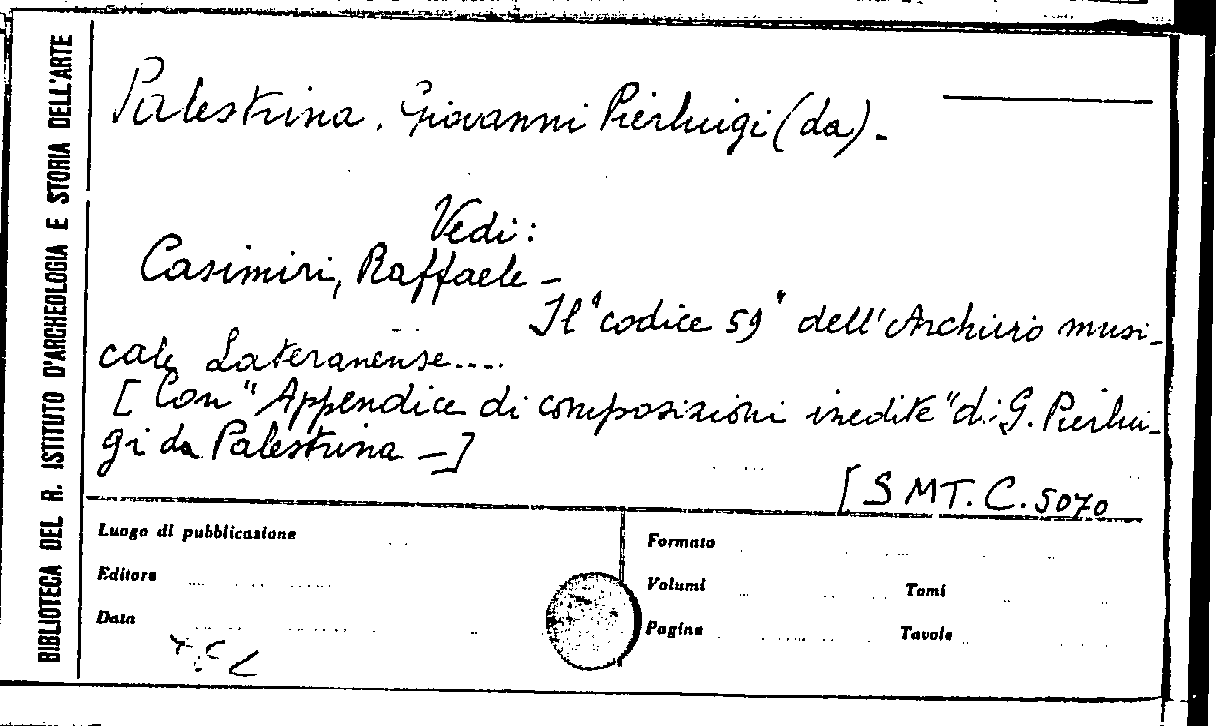 BIBLIOTECA DEL R. ISTITUTO D'ARCHEOLOGIA E STORIA DELL'ARTE
Palestrina. Giovanni Pierluigi (da) -
Vedi:
Casimiri, Raffaele -
Il "codice 59" dell'Archivio musi-
cale Lateranense....
[Con "Appendice di composizioni inedite" di G. Pierlui-
gi da Palestrina -]
[SMT. C. 5070
Luogo di pubblicazione
Editore
Data
Formato
Volumi Tomi
Pagine Tavole